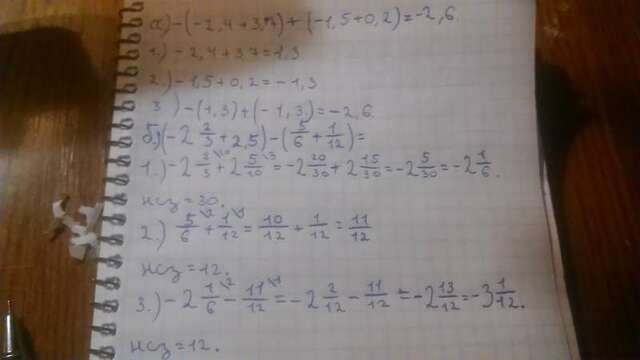 а) -(-2,4+3,7)+(-1,5+0,2)=-2,6.
1.) -2,4+3,7=1,3
2.) -1,5+0,2=-1,3
3.) -(1,3)+(-1,3)=-2,6
б) (-2 2/3+2,5)-(5/6+1/12)=
1.) -2 2/3+2 5/10=-2 20/30+2 15/30=-2 5/30=-2 1/6.
нсз=30.
2.) 5/6+1/12=10/12+1/12=11/12
нсз=12.
3.) -2 1/6-11/12=-2 2/12-11/12=-2 13/12=-3 1/12.
нсз=12.